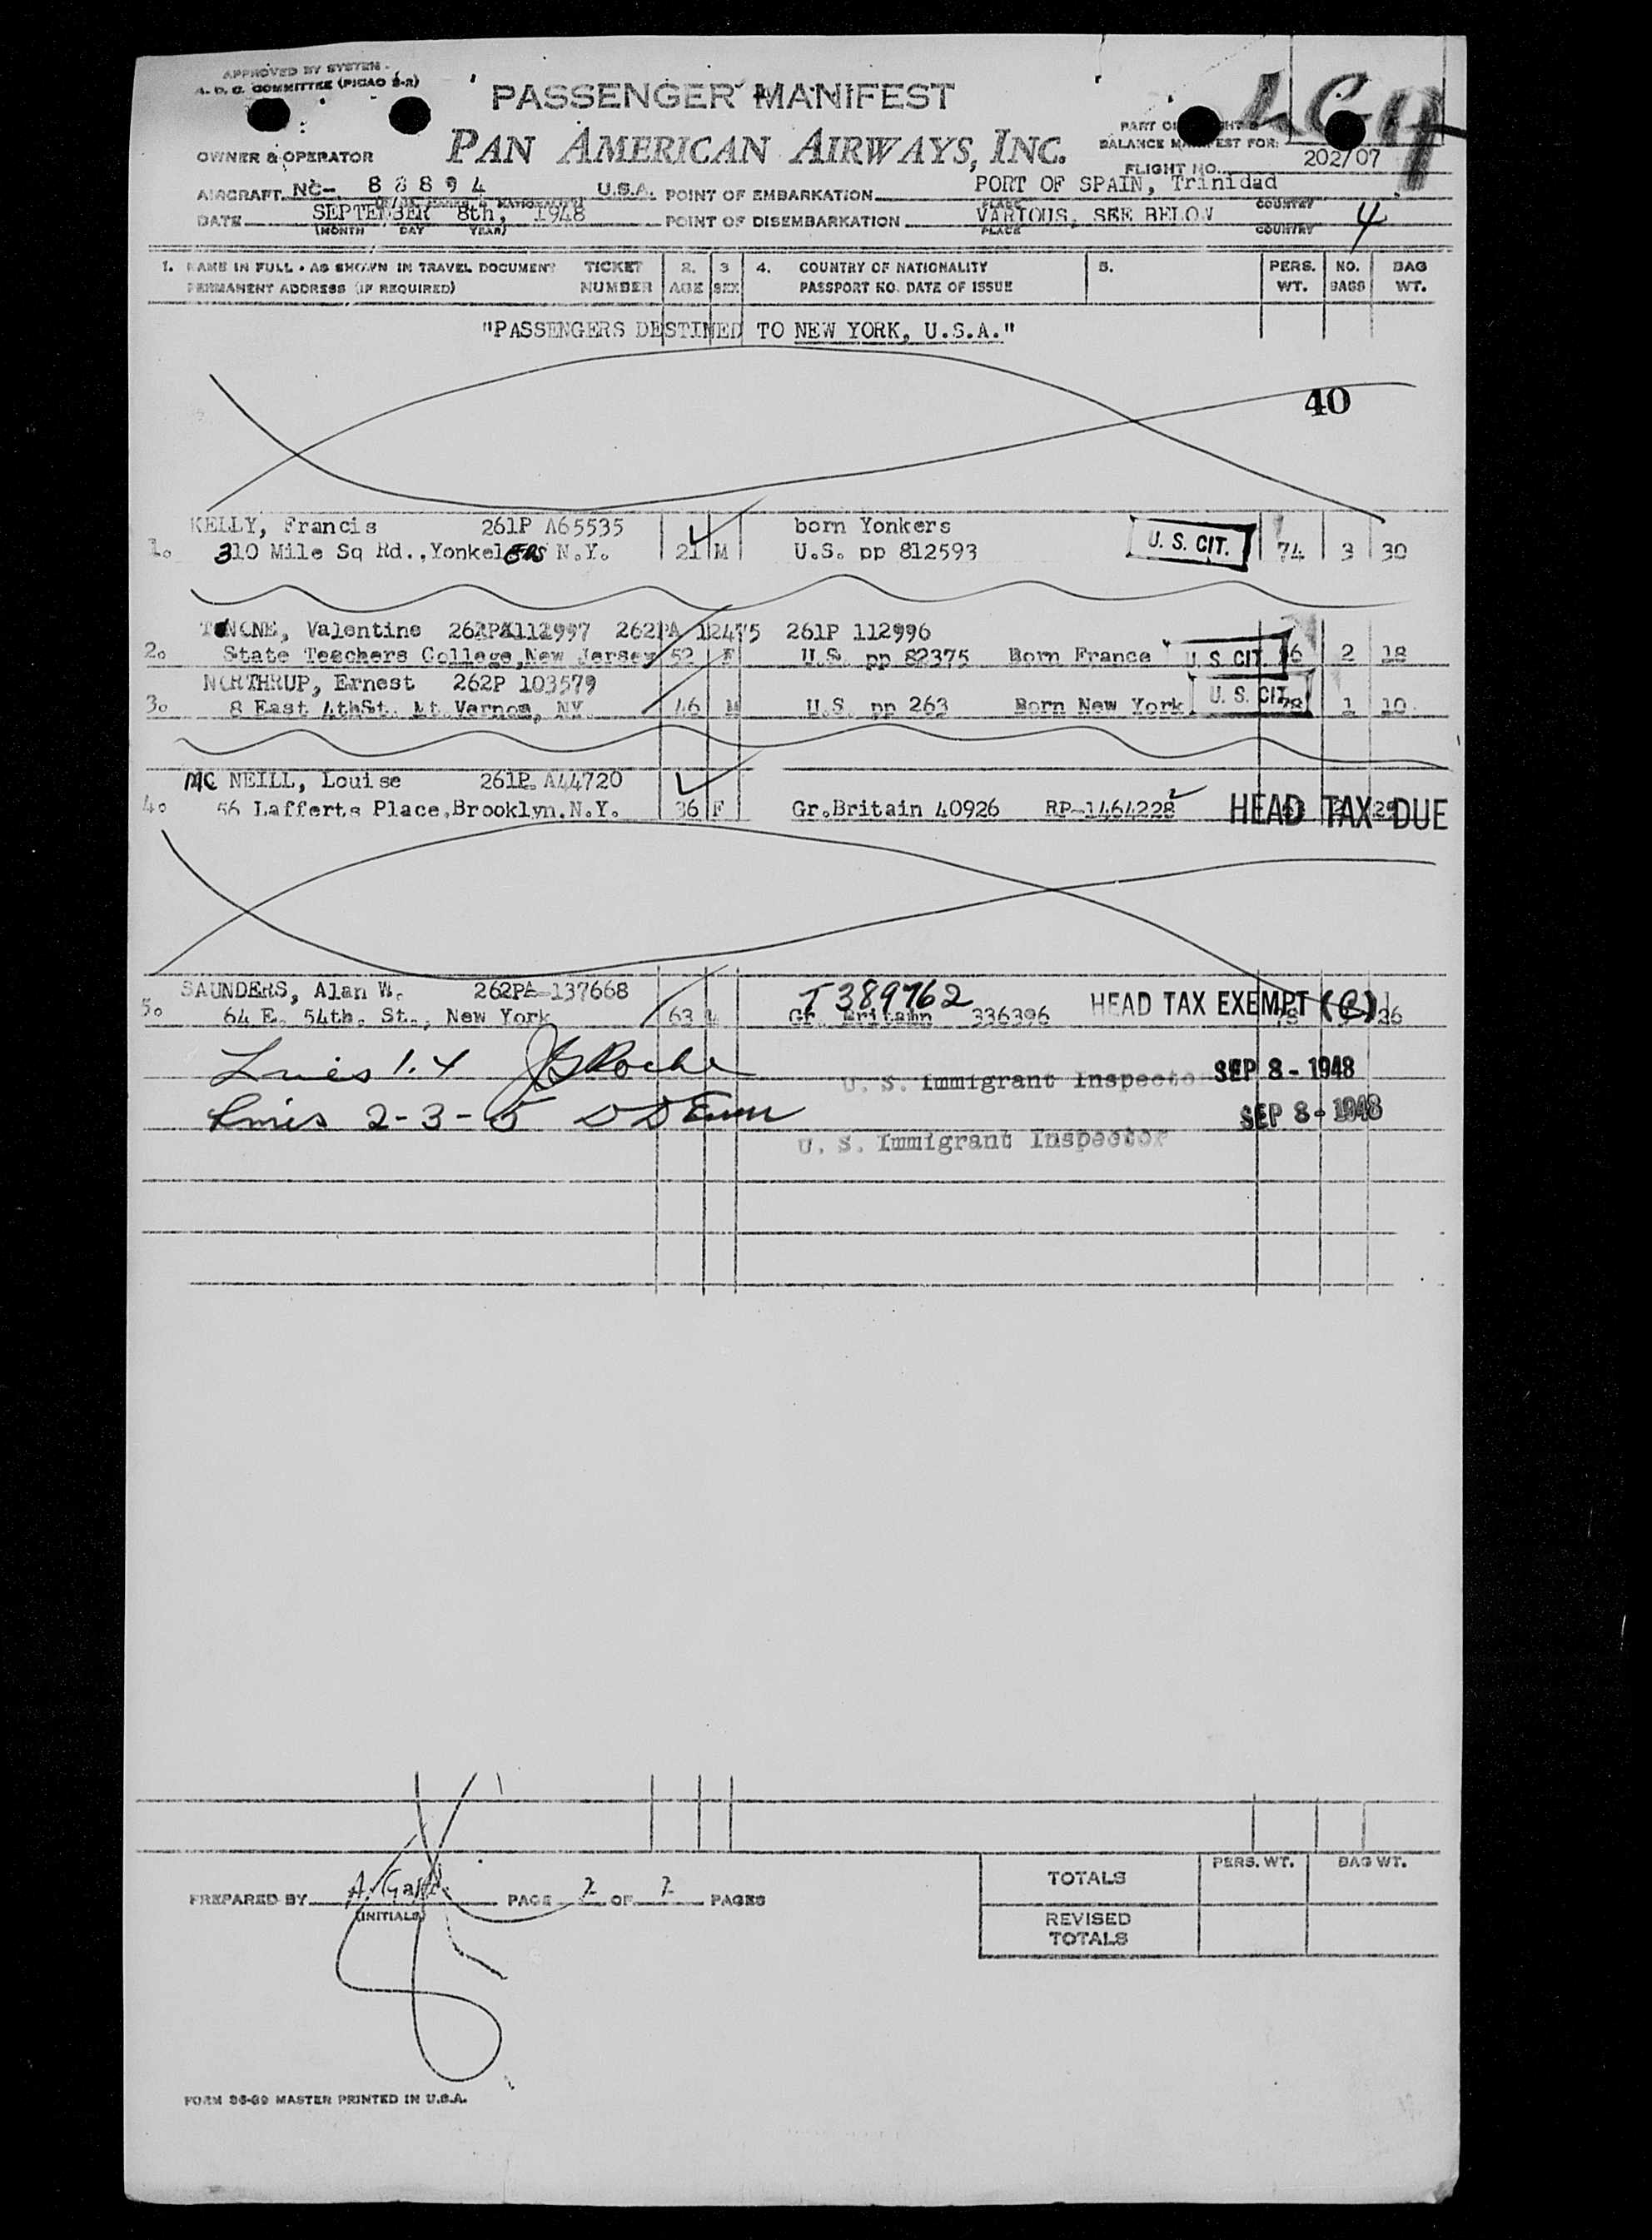 APPROVED BY SYSTEM
A. D. C. COMMITTEE (PICAO 8-2)
PASSENGER MANIFEST
LGA
PAN AMERICAN AIRWAYS, INC.
PART OF
BALANCE MANIFEST FOR:
FLIGHT NO. 202/07
OWNER & OPERATOR
AIRCRAFT NC- 88894 U.S.A. POINT OF EMBARKATION PORT OF SPAIN, Trinidad
PLACE COUNTRY
DATE SEPTEMBER 8th, 1948 POINT OF DISEMBARKATION VARIOUS, SEE BELOW 4
(MONTH DAY YEAR) PLACE COUNTRY
1. NAME IN FULL - AS SHOWN IN TRAVEL DOCUMENT TICKET 2. 3 4. COUNTRY OF NATIONALITY 5. PERS. NO. BAG
PERMANENT ADDRESS (IF REQUIRED) NUMBER AGE SEX PASSPORT NO. DATE OF ISSUE WT. BAGS WT.
"PASSENGERS DESTINED TO NEW YORK, U.S.A."
40
KELLY, Francis 261P A65535 born Yonkers
1. 310 Mile Sq Rd., Yonkers N.Y. 21 M U.S. pp 812593 U. S. CIT. 74 3 30
Valentine 112997 261P 112996
2. State Teachers College, New Jersey 52 F U.S. pp 82375 Born France U. S. CIT 2 18
NORTHRUP, Ernest 262P 103579
3. 8 East 4thSt. Mt. Vernon, NY. 46 M U.S. pp 263 Born New York U. S. CIT. 1 10
MC NEILL, Louise 261P A44720
4. 56 Lafferts Place, Brooklyn. N.Y. 36 F Gr.Britain 40926 RP-1464228 HEAD TAX DUE
SAUNDERS, Alan W. 262PA-137668 T389762
5. 64 E. 54th. St., New York 63 Gr. Britain 336396 HEAD TAX EXEMPT (C) 26
1.4 JG Roche U. S. Immigrant Inspector SEP 8 - 1948
2-3-5 SEP 8 - 1948
U. S. Immigrant Inspector
PERS. WT. BAG WT.
TOTALS
PREPARED BY PAGE 2 OF 2 PAGES
(INITIALS)
REVISED
TOTALS
FORM 36-39 MASTER PRINTED IN U.S.A.